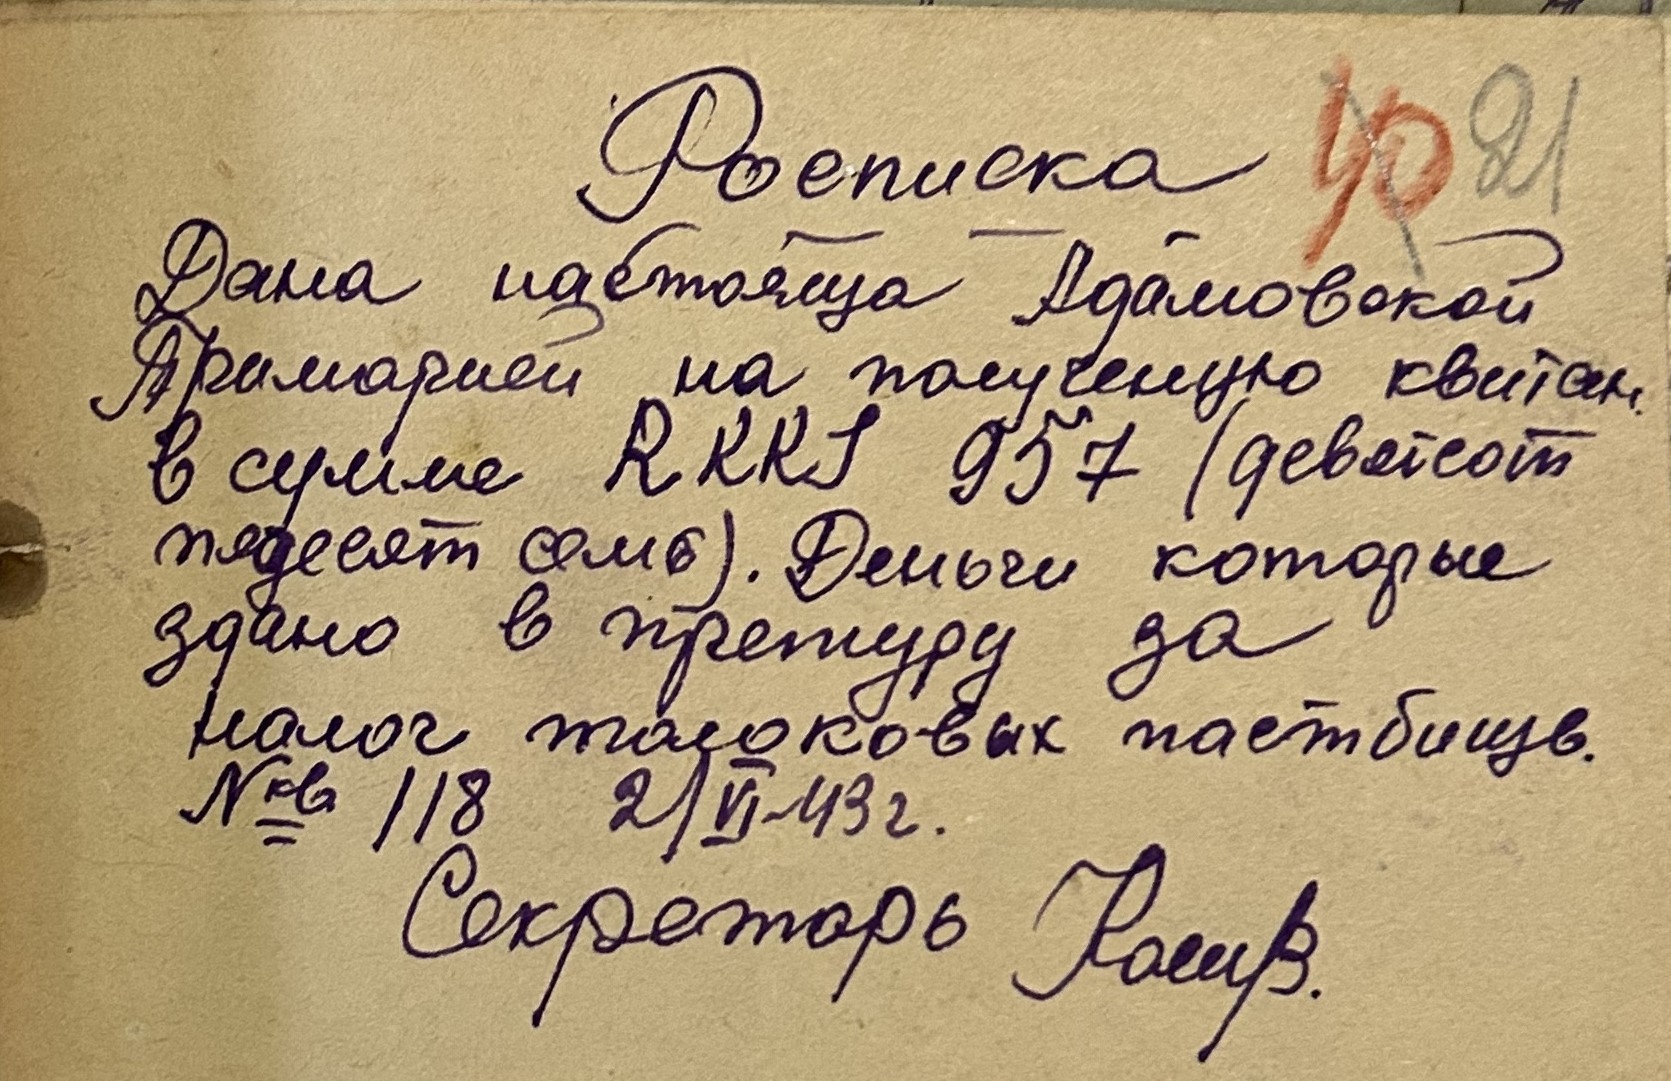 Росписка 40 21
Дана настояща Адамовской
Примарией на полученую квитан.
в сумме RKKS 957 (девятсот
пядесят семь). Деньги которые
здано в претуру за
налог толоковых пастбищв.
№кв 118 21/VI-43г.
Секретарь